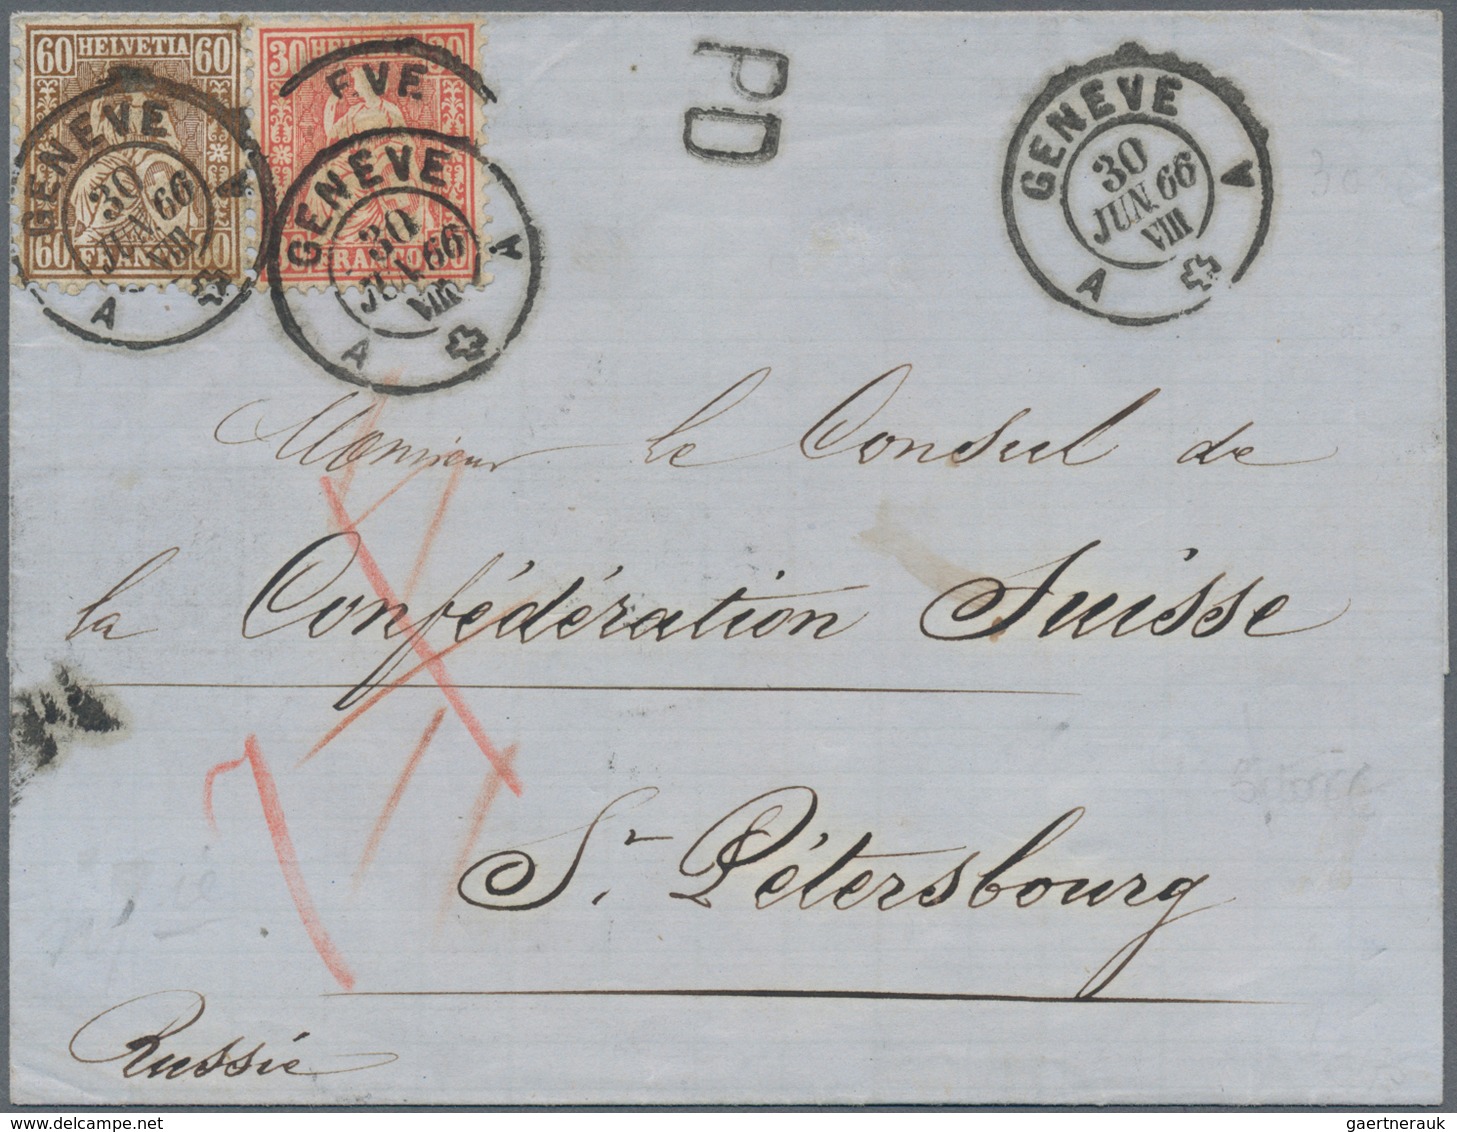 60 HELVETIA 60
60 FRANCO 60
30 HELVETIA 30
FRANCO
GENEVE
A A
30
JUN. 66
VIII
EVE
GENEVE
A A
30
JUN. 66
VIII
PD
GENEVE
A A
30
JUN. 66
VIII
Monsieur le Consul de
la Confédération Suisse
St. Pétersbourg
Russie
gaertnerauk